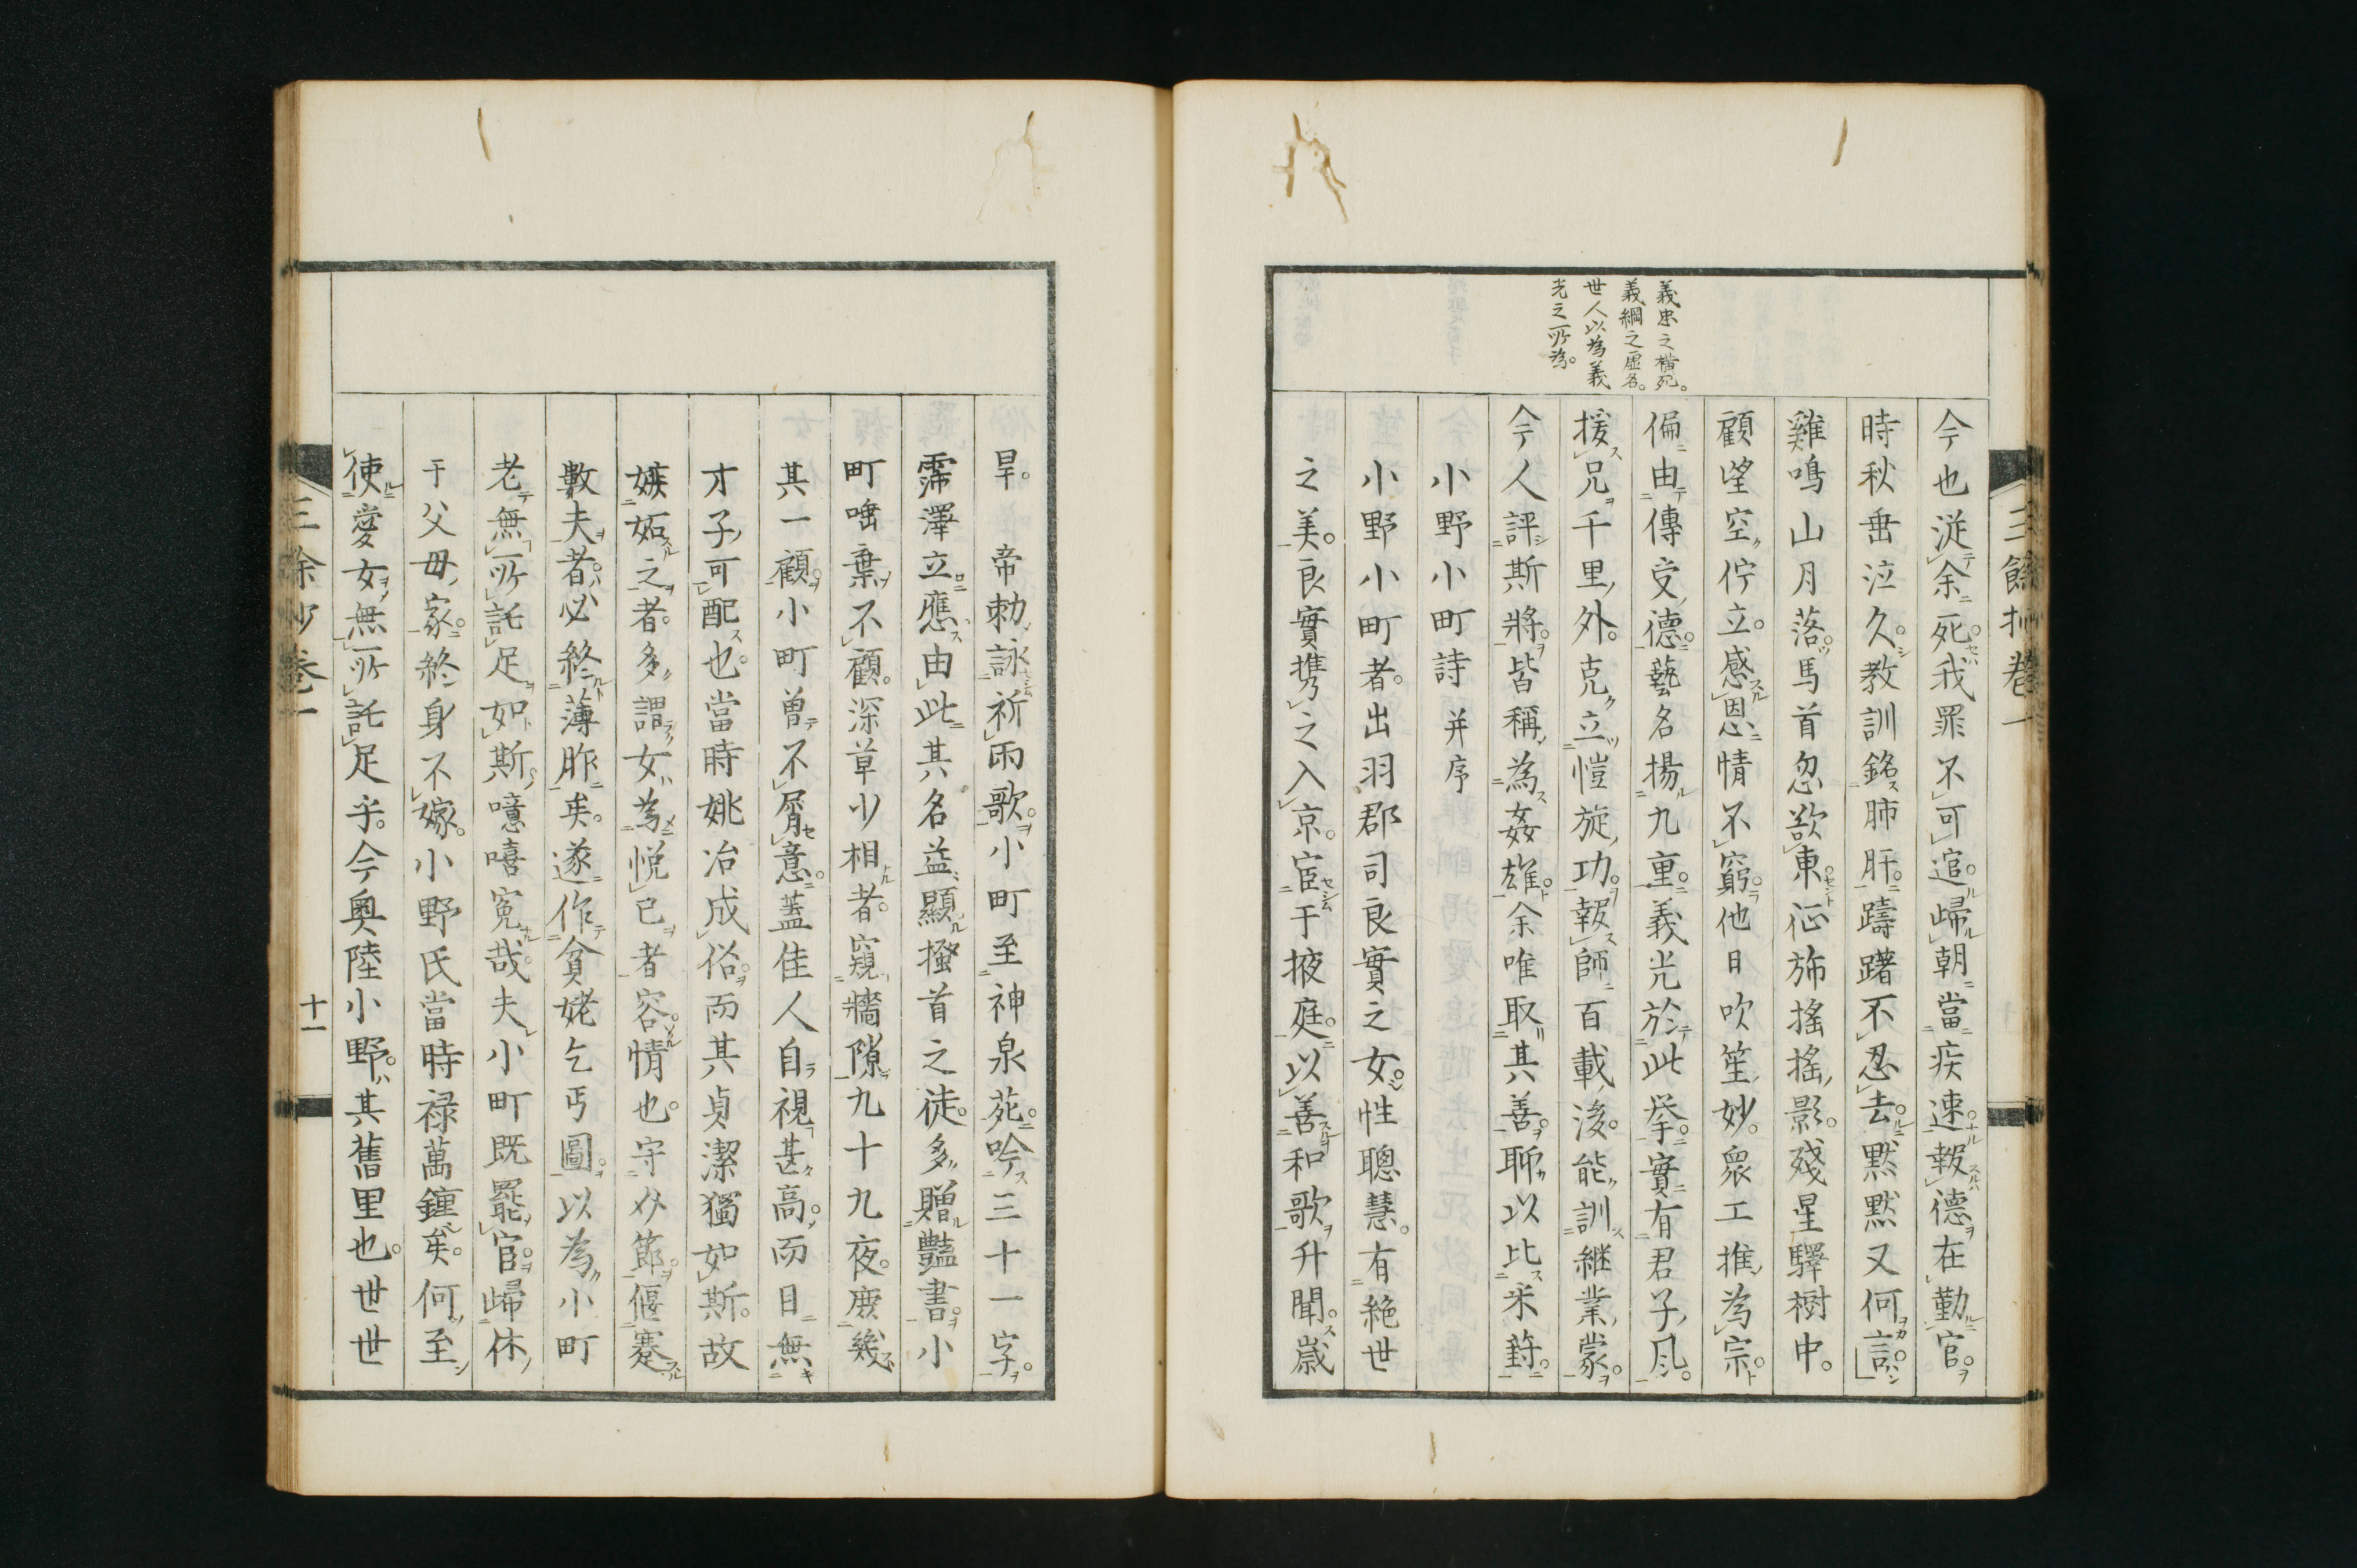 三餘抄卷一
義忠之橫死。
義綱之虛名。
世人以為義
光之所為。
今也從余死我罪不可逭歸朝當疾速報德在勤官
時秋垂泣久教訓銘肺肝躊躇不忍去默默又何言
雞鳴山月落馬首忽欲東征旆搖搖影殘星驛樹中
顧望空佇立感恩情不窮他日吹笙妙衆工推為宗
偏由傳受德藝名揚九重義光於此挙實有君子風
援兄千里外克立愷旋功報師百載後能訓継業蒙
今人評斯將皆稱為姦雄余唯取其善聊以比采葑
小野小町詩并序
小野小町者出羽郡司良實之女性聰慧有絶世
之美良實携之入京宦于掖庭以善和歌升聞歳
旱帝勅詠祈雨歌小町至神泉苑吟三十一字
霈澤立應由此其名益顯搔首之徒多贈豔書小
町唾棄不顧深草少相者窺牆隙九十九夜庶幾
其一顧小町曽不屑意蓋佳人自視甚高而目無
才子可配也當時姚冶成俗而其貞潔獨如斯故
嫉妬之者多謂女為悅己者容情也守父節偃蹇
數夫者必終薄胙矣遂作貧姥乞丐圖以為小町
老無所託足如斯噫嘻寃哉夫小町既罷官歸休
于父母家終身不嫁小野氏當時祿萬鍾矣何至
使愛女無所託足乎今奧陸小野其舊里也世世
三餘抄卷一
十一